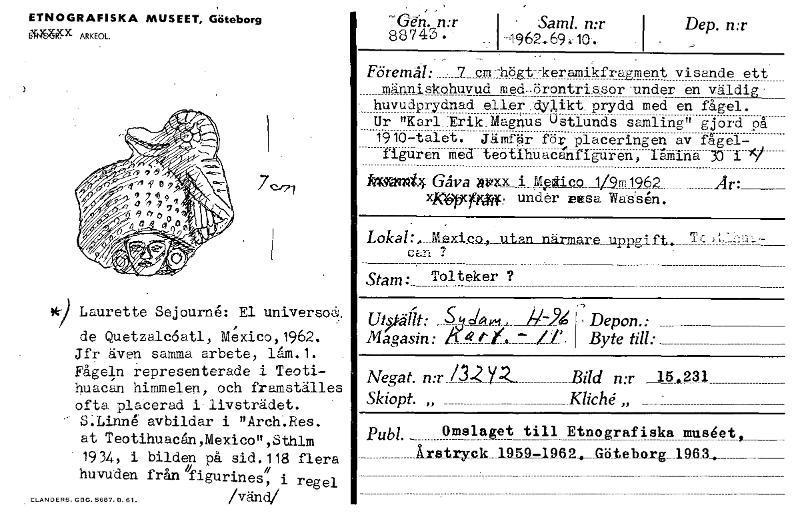 ETNOGRAFISKA MUSEET, Göteborg
ETNOGR. ARKEOL.
7 cm
*/ Laurette Sejourné: El universo
de Quetzalcóatl, México, 1962.
Jfr även samma arbete, lám. 1.
Fågeln representerade i Teoti-
huacán himmelen, och framställes
ofta placerad i livsträdet.
S.Linné avbildar i "Arch.Res.
at Teotihuacán,Mexico",Sthlm
1934, i bilden på sid.118 flera
huvuden från "figurines", i regel
/vänd/
ELANDERS, GBG. 5687. B. 61.
Gen. n:r
88743.
Saml. n:r
1962.69.10.
Dep. n:r
Föremål: 7 cm högt keramikfragment visande ett
människohuvud med örontrissor under en väldig
huvudprydnad eller dylikt prydd med en fågel.
Ur "Karl Erik Magnus Östlunds samling" gjord på
1910-talet. Jämför för placeringen av fågel-
figuren med teotihuacánfiguren, lámina 30 i */
Gåva i Mexico 1/9 1962 År:
Köp från under resa Wassén.
Lokal: Mexico, utan närmare uppgift. Teotihua-
can ?
Stam: Tolteker ?
Utställt: Sydam. H-96 Depon.:
Magasin: Kart. - 11 Byte till:
Negat. n:r 13242 Bild n:r 15.231
Skiopt. „ Kliché „
Publ. Omslaget till Etnografiska muséet,
Årstryck 1959-1962. Göteborg 1963.